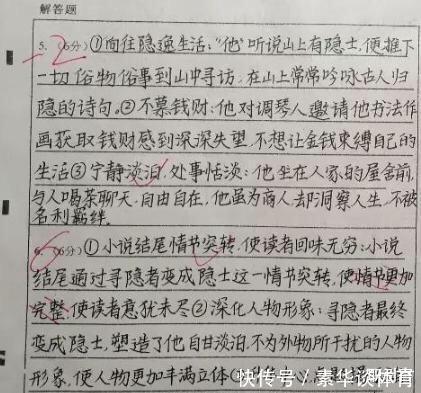 解答题
5. (6分) ①向往隐逸生活:"他"听说山上有隐士,便推下
-2
一切俗物俗事到山中寻访,在山上常常吟咏古人归
隐的诗句。②不慕钱财:他对调琴人邀请他书法作
画获取钱财感到深深失望,不想让金钱束缚自己的
生活③宁静淡泊,处事恬淡:他坐在人家的屋舍前,
与人喝茶聊天,自由自在,他虽为商人却洞察人生,不被
名利羁绊。
6. (6分) ①小说结尾情节突转,使读者回味无穷:小说
结尾通过寻隐者变成隐士这一情节突转,使情节更加
完整,使读者意犹未尽②深化人物形象:寻隐者最终
变成隐士,塑造了他自甘淡泊,不为外物所干扰的人物
形象,使人物更加丰满立体
快传号/素华谈体育